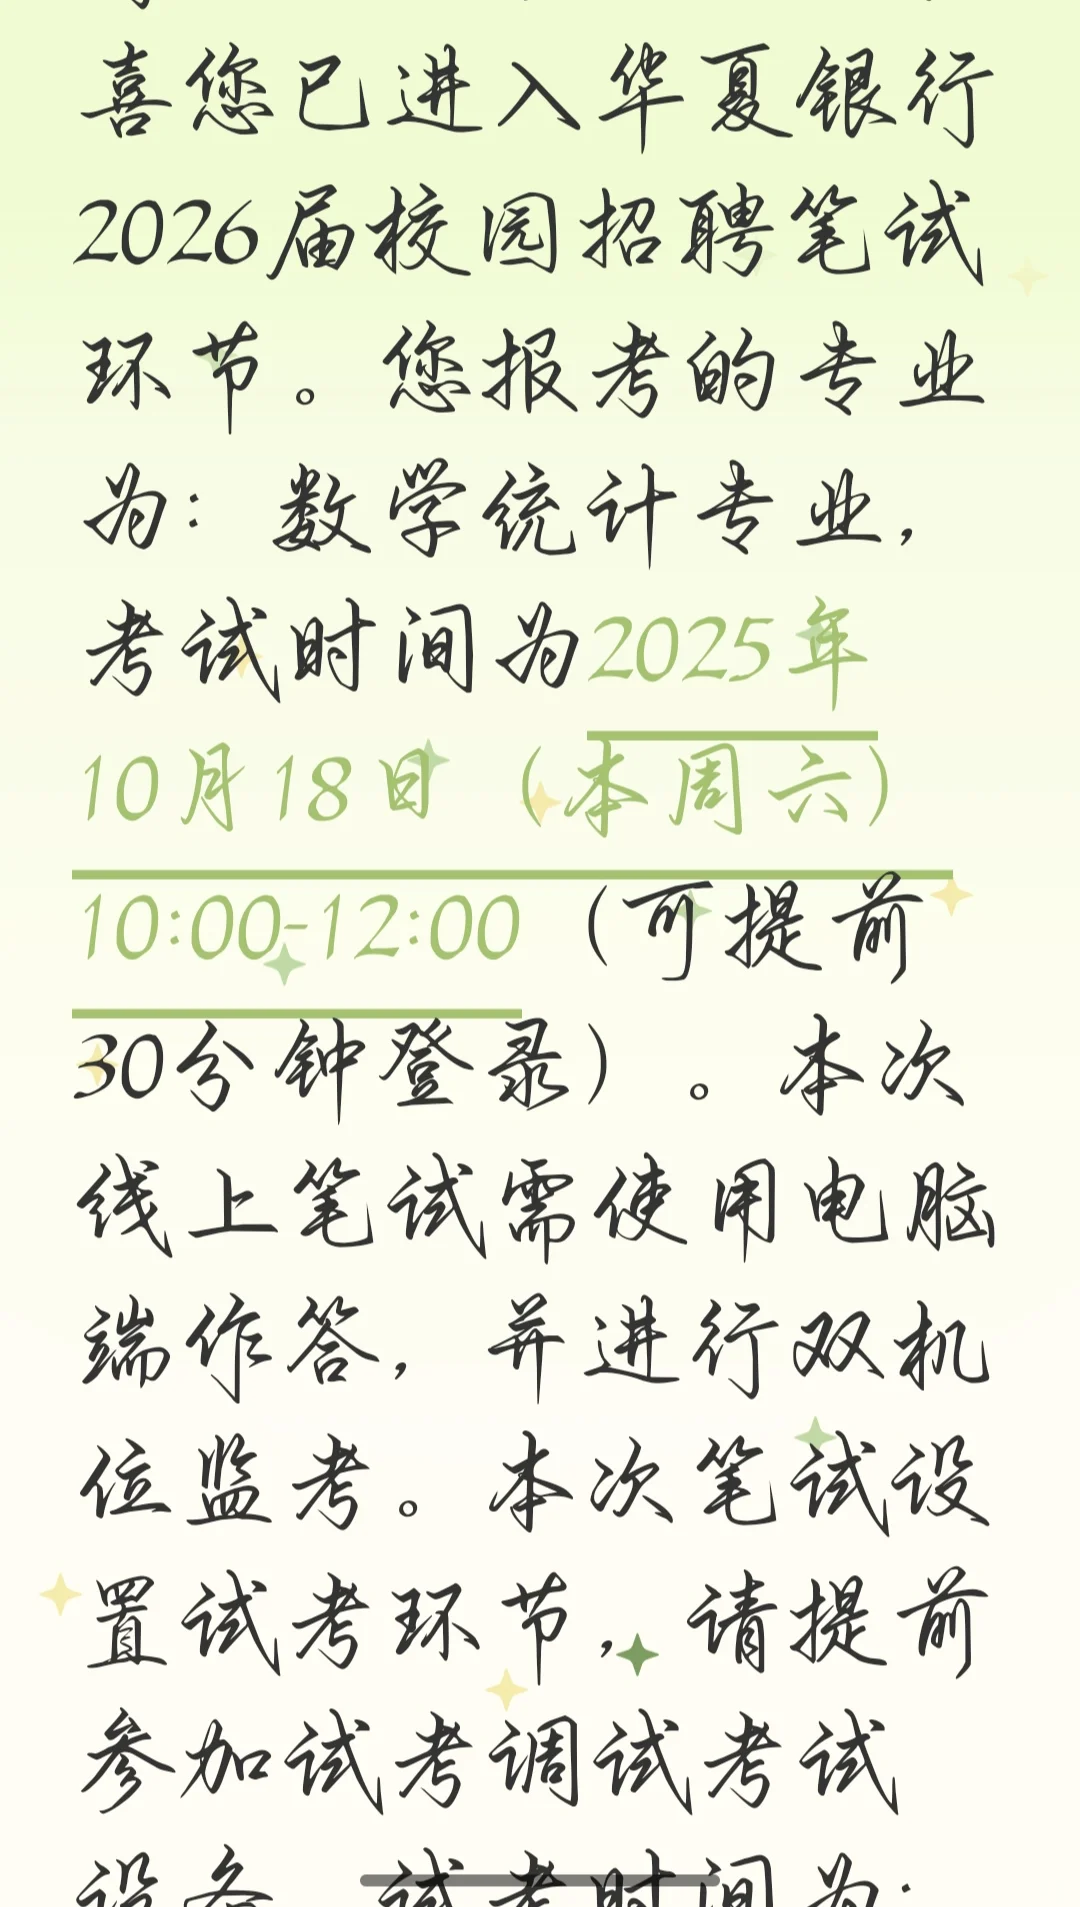 喜您已进入华夏银行
2026届校园招聘笔试
环节。您报考的专业
为：数学统计专业，
考试时间为2025年
10月18日（本周六）
10:00-12:00（可提前
30分钟登录）。本次
线上笔试需使用电脑
端作答，并进行双机
位监考。本次笔试设
置试考环节，请提前
参加试考调试考试
设备，试考时间为：